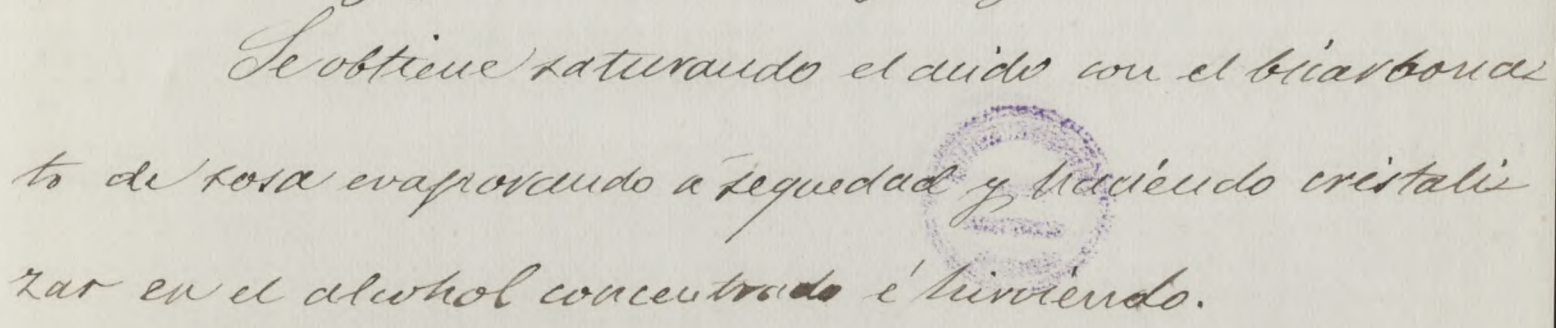 Se obtiene saturando el acido con el bicarbona-
to de sosa evaporando a sequedad y haciendo cristali-
zar en el alcohol concentrado é hirviendo.